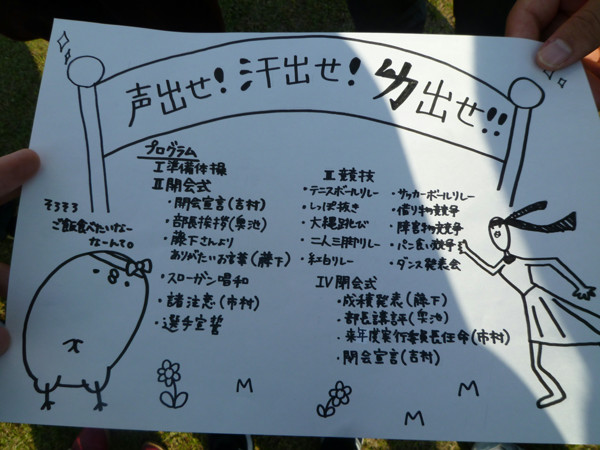 声出せ！汗出せ！力出せ！！
プログラム
Ⅰ準備体操
Ⅱ開会式
・開会宣言(吉村)
・部長挨拶(栗池)
・藤下さんより
ありがたいお言葉(藤下)
・スローガン唱和
・諸注意(市村)
・選手宣誓
Ⅲ競技
・テニスボールリレー
・しっぽ抜き
・大縄跳び
・二人三脚リレー
・紅白リレー
・サッカーボールリレー
・借り物競争
・障害物競争
・パン食い競争
・ダンス発表会
Ⅳ閉会式
・成績発表(藤下)
・部長講評(栗池)
・来年度実行委員長任命(市村)
・閉会宣言(吉村)
そろそろ
ご飯食べたいなー
なーんて。